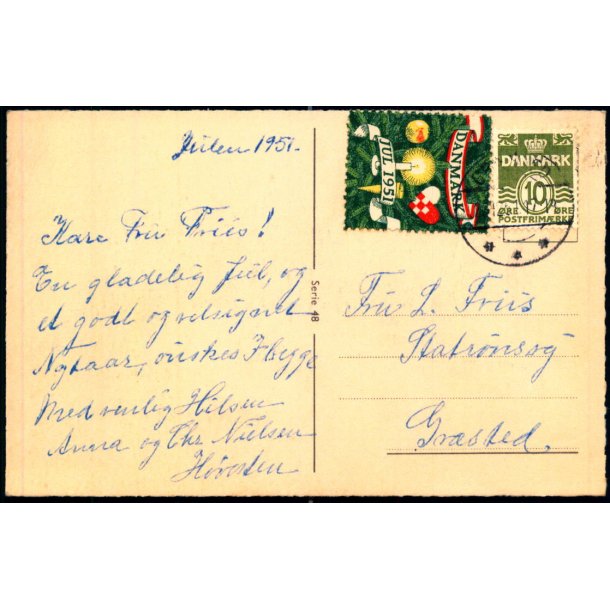 Julen 1951.
Kære Fru Friis!
En gladelig Jul, og
et godt og velsignet
Nytaar, ønskes I begge
Med venlig Hilsen
Anna og Chr. Nielsen
Serie 48
JUL 1951
DANMARK
DANMARK
10
ØRE ØRE
POSTFRIMÆRKE
Fru L. Friis
Græsted.